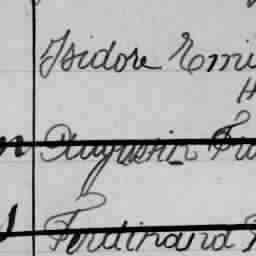 Isidore Emi
H
n Augustin Fra
Ferdinand